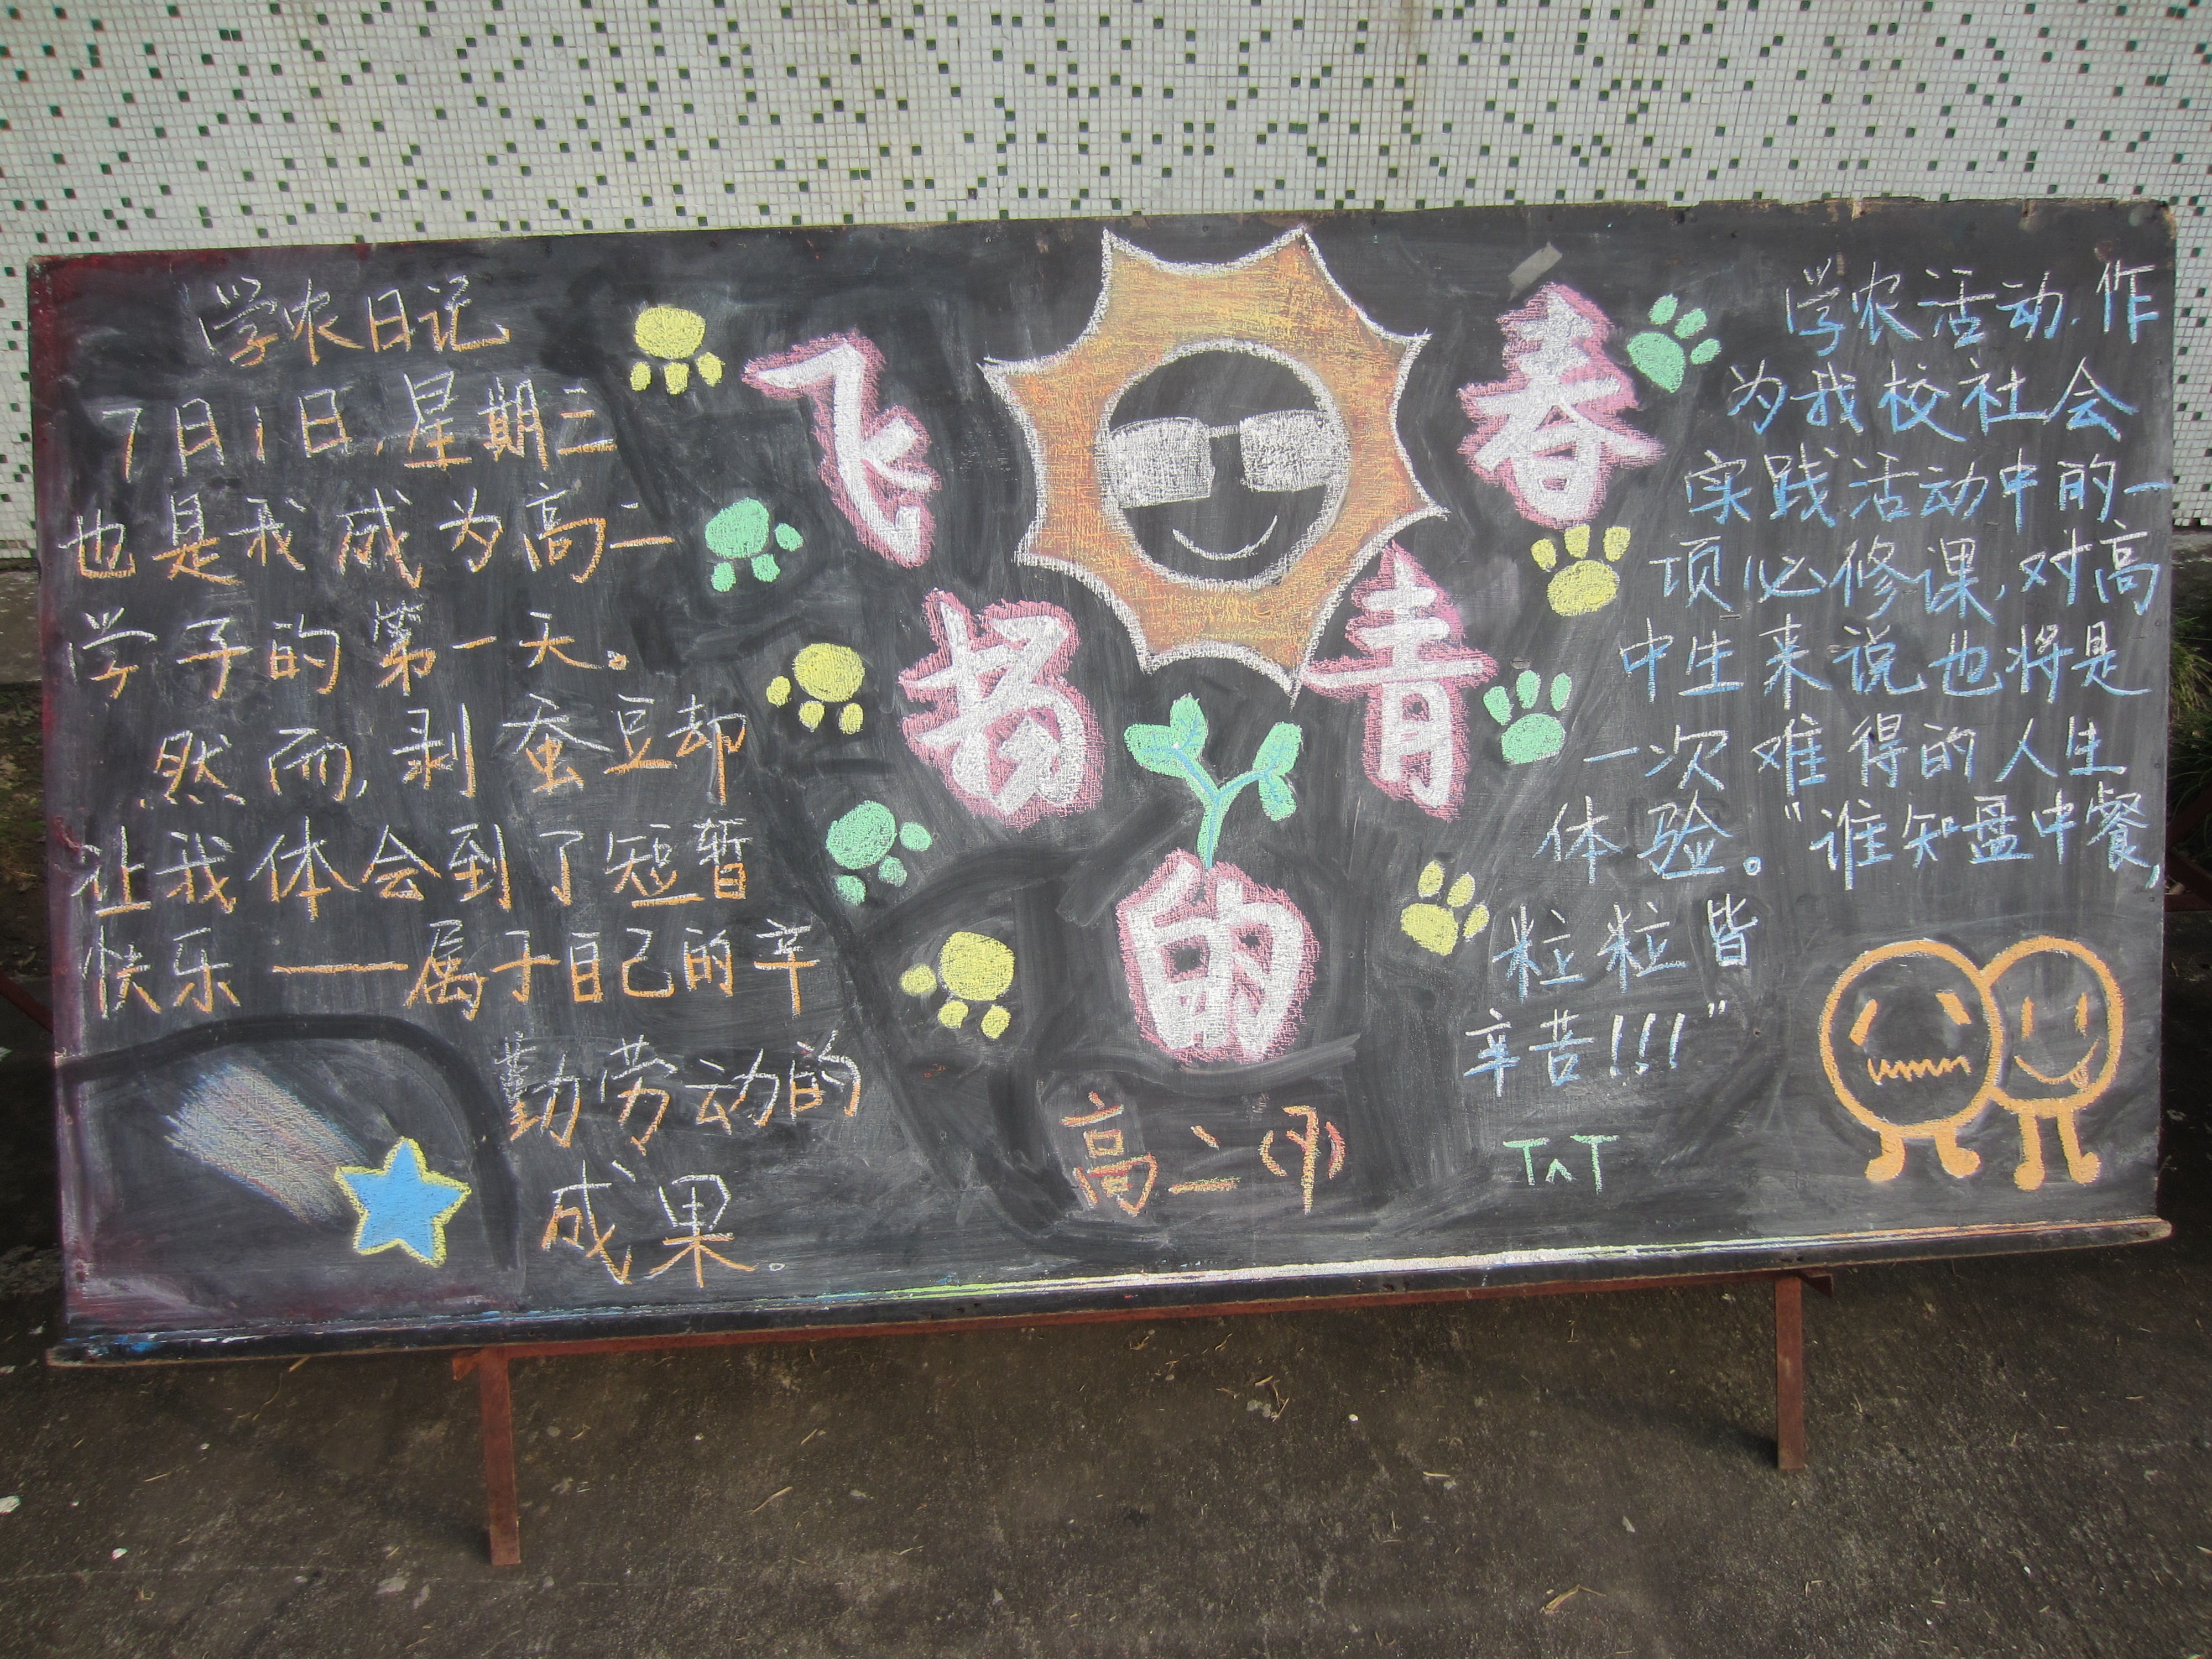 学农日记
7月1日,星期三
也是我成为高二
学子的第一天。
然而,剥蚕豆却
让我体会到了短暂
快乐——属于自己的辛
勤劳动的
成果。
飞
扬
的
青
春
高二(甲)
学农活动,作
为我校社会
实践活动中的一
项必修课,对高
中生来说也将是
一次难得的人生
体验。“谁知盘中餐,
粒粒皆
辛苦!!!”
T^T